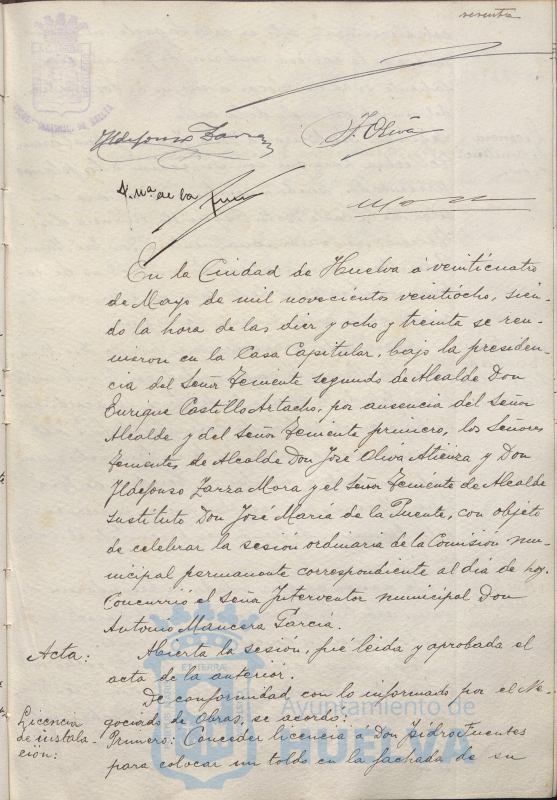 sesenta
Ildefonso Zarza
J. Oliva
J. Mª de la Puente
En la Ciudad de Huelva á veinticuatro
de Mayo de mil novecientos veintiocho, sien-
do la hora de las diez y ocho y treinta se reu-
nieron en la Casa Capitular, bajo la presiden-
cia del Señor Teniente segundo de Alcalde Don
Enrique Castillo Artacho, por ausencia del Señor
Alcalde y del Señor Teniente primero, los Señores
Tenientes de Alcalde Don José Oliva Atienza y Don
Ildefonso Zarza Mora y el Señor Teniente de Alcalde
sustituto Don José María de la Puente, con objeto
de celebrar la sesión ordinaria de la Comisión mu-
nicipal permanente correspondiente al dia de hoy.
Concurrió el Señor Interventor municipal Don
Antonio Mancera García.
Acta:
Abierta la sesión, fué leida y aprobada el
acta de la anterior.
De conformidad con lo informado por el Ne-
Licencia
de instala-
ción:
gociado de Obras, se acordó:
Primero: Conceder licencia á Don Isidro Fuentes
para colocar un toldo en la fachada de su
Ayuntamiento de
HUELVA